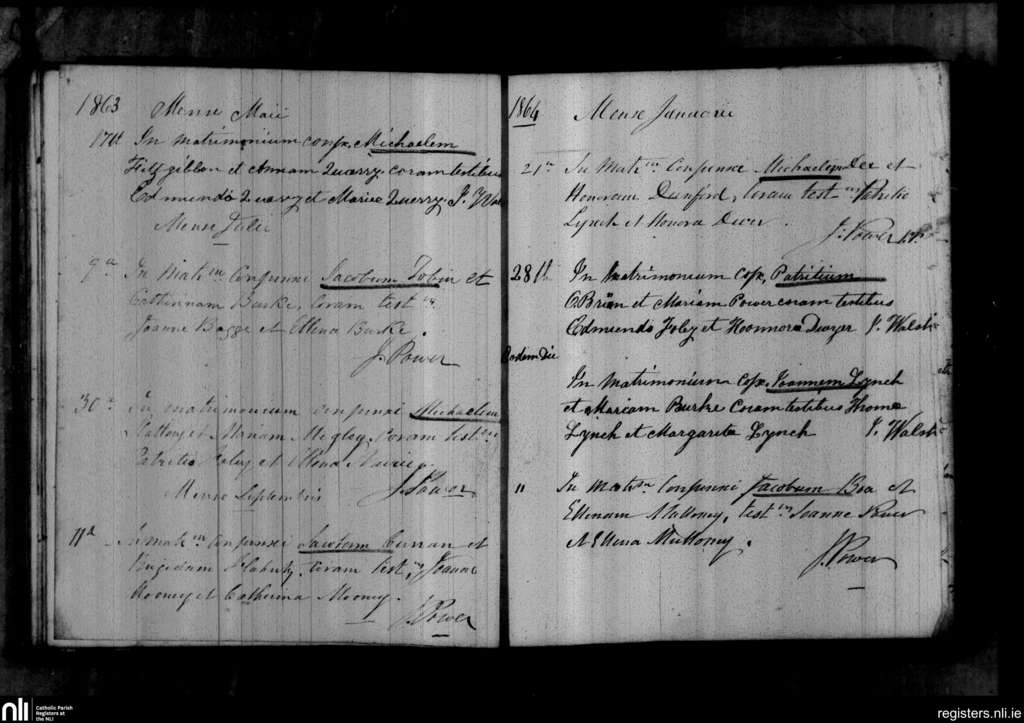 1863 Mense Maii
17th In matrimonium conjx. Michaelem
Fitzgibbon et Annam Quarry, coram testibus
Edmundo Quarry et Maria Querry. J. Wals
Mense Julii
9a In Matem Conjunxi Jacobum Tobin et
Catherinam Burke, Coram test
Joanne Bagge et Ellena Burke.
J. Power
30a In matrimonium conjunxi Michaelem
et Mariam coram test
Patritio Foley et Ellena
Mense Septembris J. Power
11a In Matm Conjunxi Jacobum Curran et
Brigidam Flaherty, Coram test, Joanne
Mooney et Catherina Mooney.
J. Power
1864 Mense Januarii
21a In Matm Conjunxi Michaelem Dee et
Honoram Dunford, Coram test Patritio
Lynch et Honora Dwer.
J. Power
28th In Matrimonium Cojx, Patritium
OBrien et Mariam Power coram testibus
Edmundo Foley et Honnora Dwyer J. Walsh
Eodem Die
In Matrimonium Cojx. Joannem Lynch
et Mariam Burke Coram testibus Thoma
Lynch et Margarita Lynch J. Walsh
11 In Matm Conjunxi Jacobum Bea et
Ellenam Mulloney, test Joanne Power
et Ellena Mulloney.
J. Power
nli Catholic Parish
Registers at
the NLI
registers.nli.ie